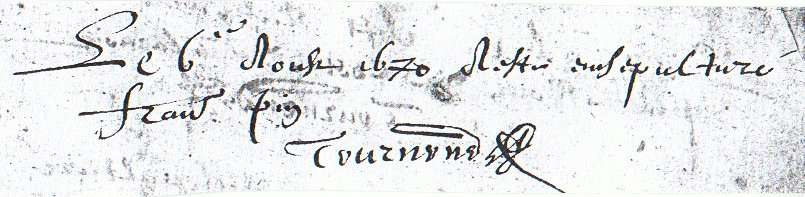 Le 6e d'oust 1670 a este ensepulturé
Frans pin
Tournond